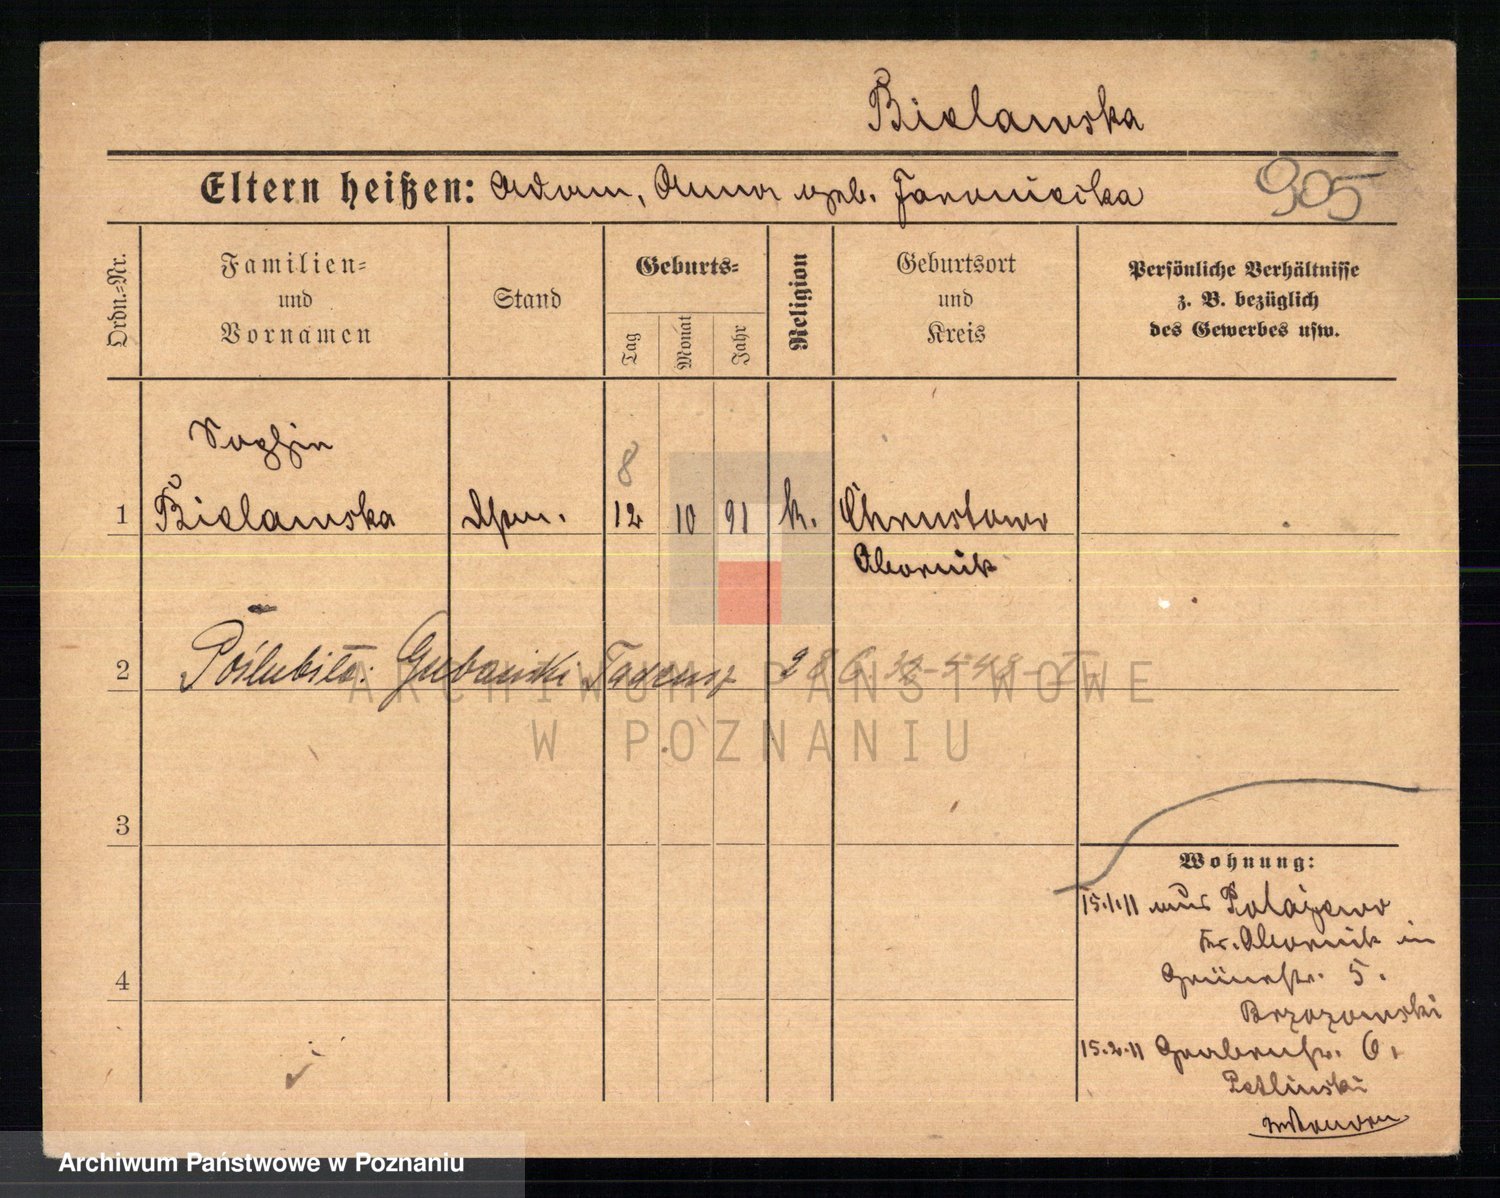 Bielawska
Eltern heißen: Adam, Anna geb. Jaraniecka
905
Ordn.-Nr.
Familien-
und
Vornamen
Stand
Geburts-
Tag
Monat
Jahr
Religion
Geburtsort
und
Kreis
Persönliche Verhältnisse
z. B. bezüglich
des Gewerbes usw.
Sophie
8
1 Bielawska 12 10 91 k. Chrustowo
Obornik
2 Poślubiła: Tadeusz
3
4
Wohnung:
15.1.11 aus Polajewo
Kr. Obornik in
Grünestr. 5.
Brzozowski
15.2.11 Grabenstr. 6.
Petlinski
ARCHIWUM PAŃSTWOWE
W POZNANIU
Archiwum Państwowe w Poznaniu